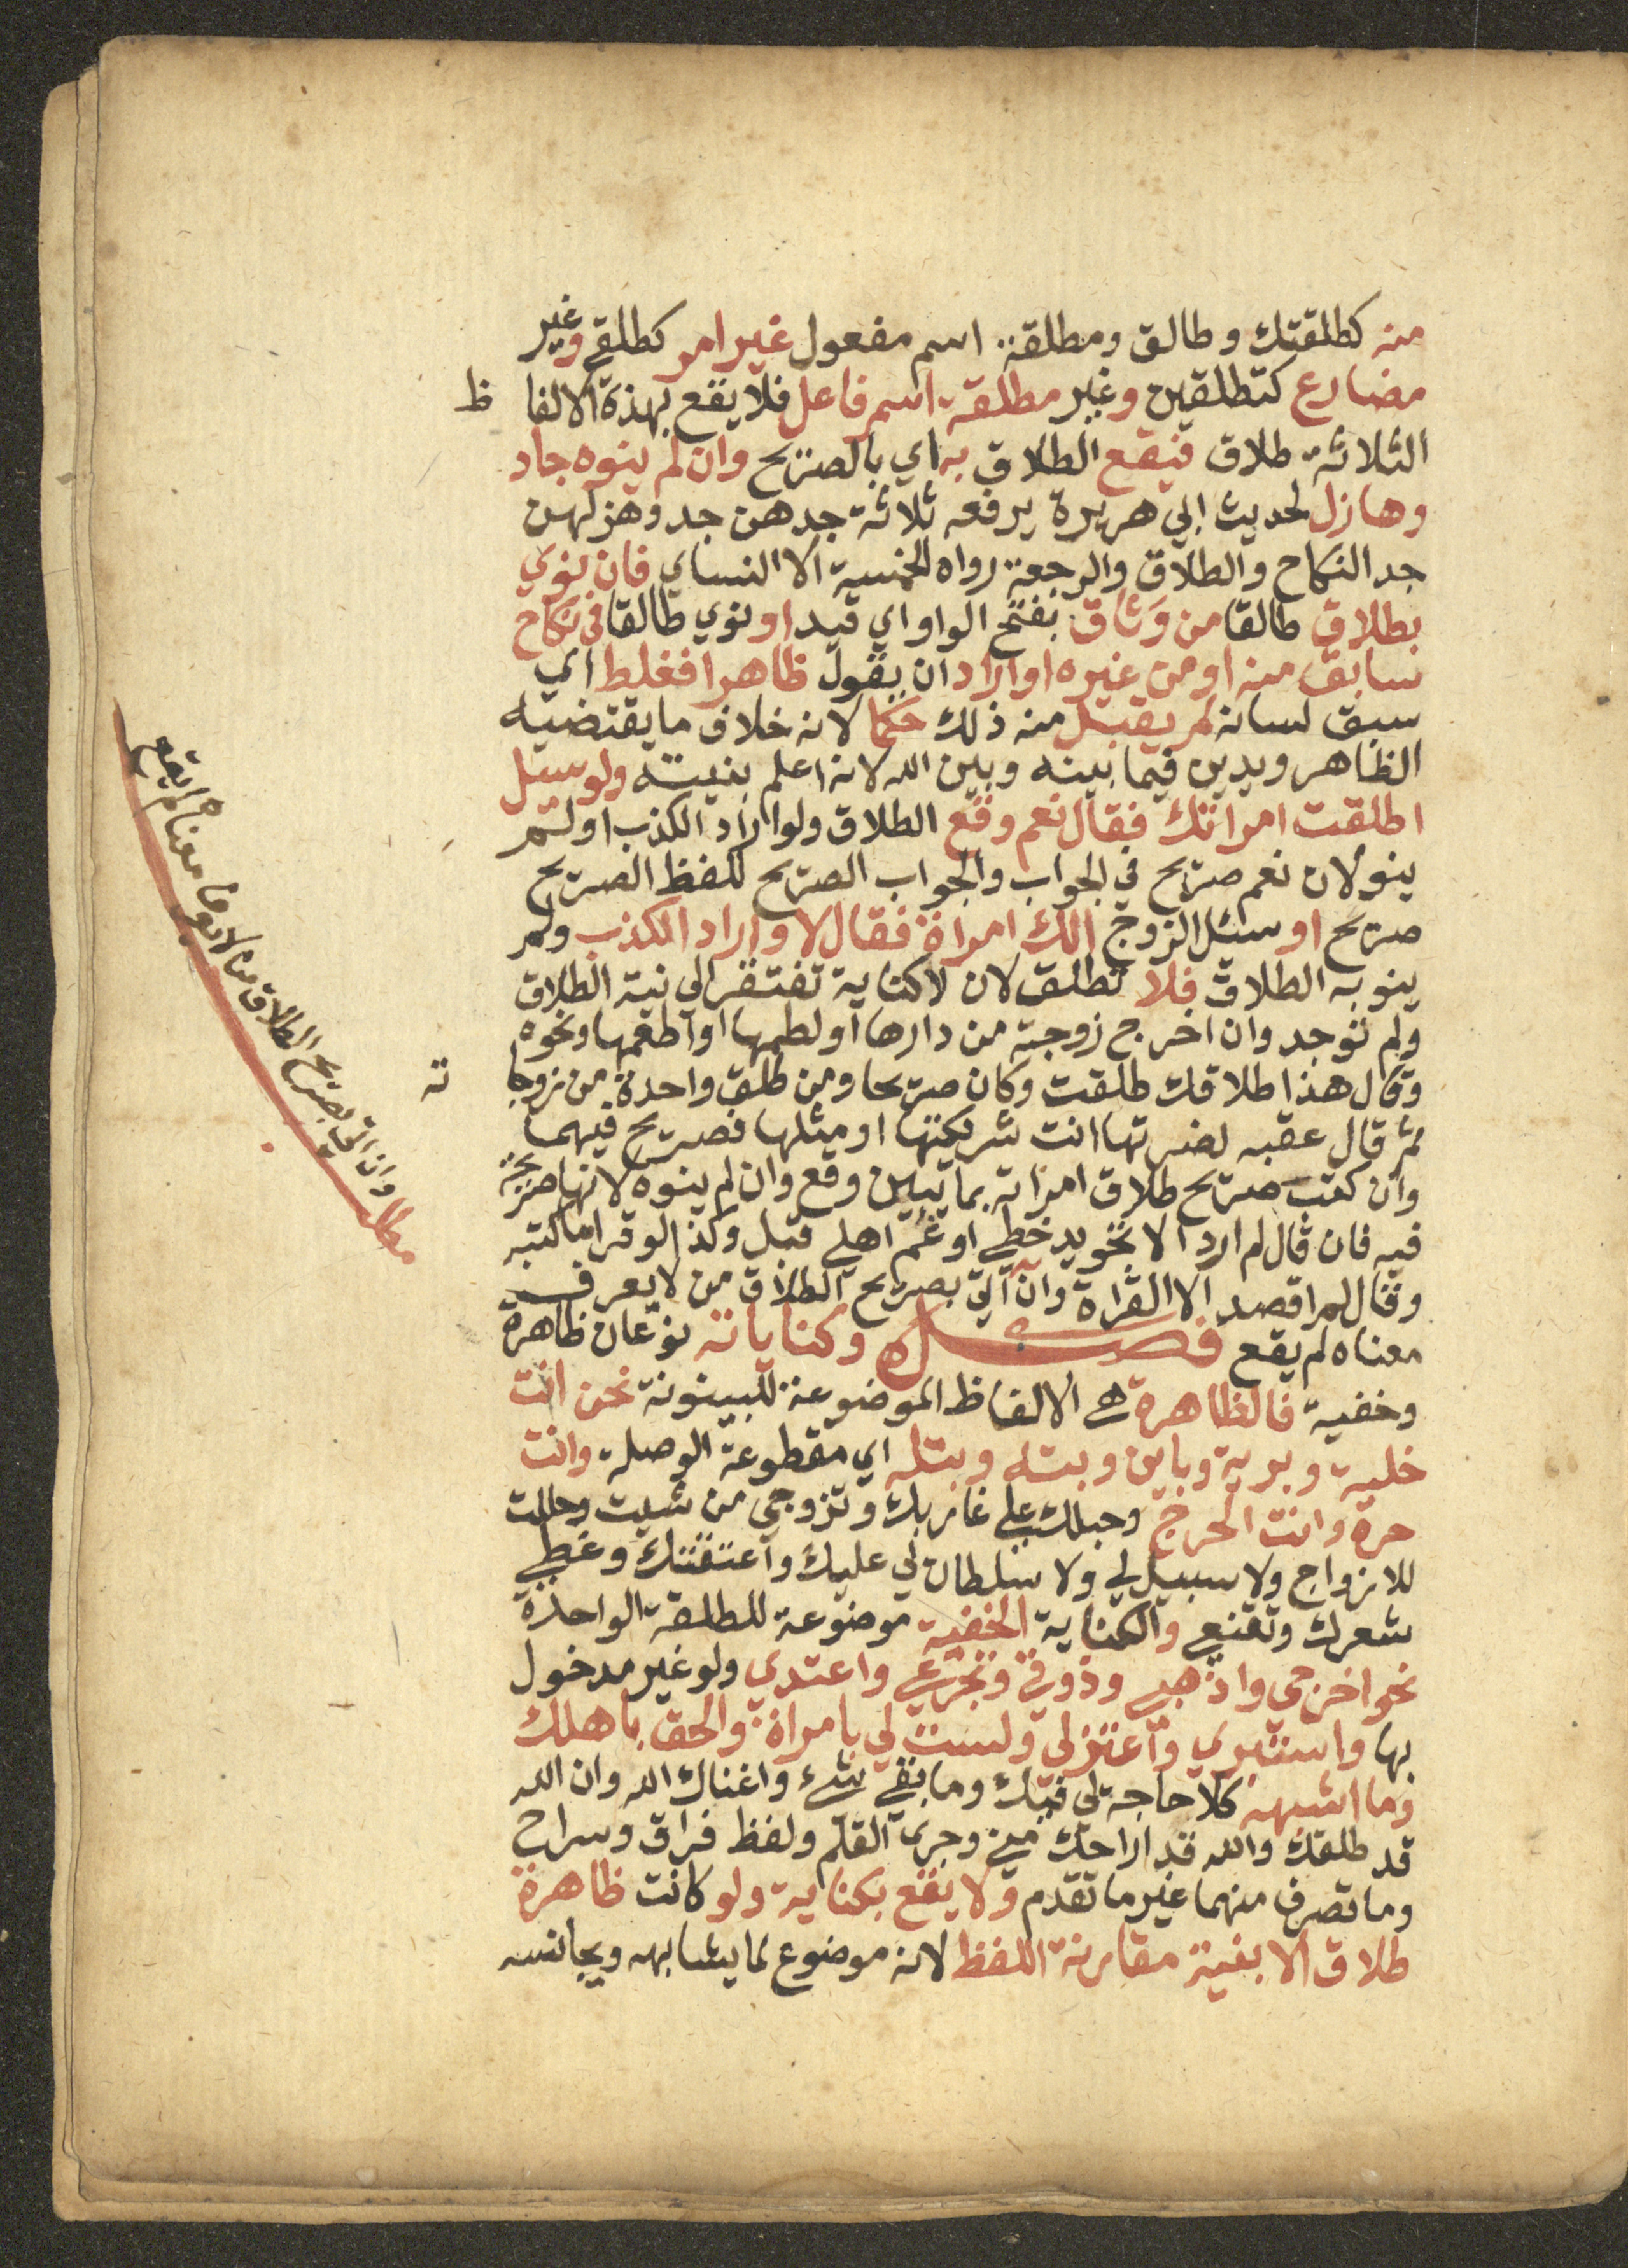 منه كطلقتك وطالق ومطلقة اسم مفعول غير امر كطلقي وغير
مضارع كتطلقين وغير مطلقة اسم فاعل فلا يقع بهذه الالفاظ
الثلاثة طلاق فيقع الطلاق به اي بالصريح وان لم ينوه جاد
وهازل لحديث ابي هريرة يرفعه ثلاثة جدهن جد وهزلهن
جد النكاح والطلاق والرجعة رواه الخمسة الا النساي فان نوي
بطلاق طالقا من وَثاق بفتح الواو اي قيد او نوي طالقا في نكاح
سابق منه او من غيره او اراد ان يقول ظاهرا فغلط اي
سبق لسانه لم يقبل منه ذلك حكما لانه خلاف ما يقتضيه
الظاهر ويدين فيما بينه وبين الله لانه اعلم بنيته ولو سيل
اطلقت امراتك فقال نعم وقع الطلاق ولو اراد الكذب او لم
ينو لان نعم صريح في الجواب والجواب الصريح للفظ الصريح
صريح او سئل الزوج الك امراة فقال لا واراد الكذب ولم
ينو به الطلاق فلا تطلق لان لا كناية تفتقر الي نية الطلاق
ولم توجد وان اخرج زوجته من دارها او لطمها او اطعمها ونحوه
وقال هذا طلاقك طلقت وكان صريحا ومن طلق واحدة من زوجاته
ثم قال عقبه لضرتها انت شريكتها او مثلها فصريح فيهما
وان كتب صريح طلاق امراته بما يبين وقع وان لم ينوه لانها صريحة
فيه فان قال لم ارد الا تجويد خطي او غم اهلي قبل وكذا لو قرا ما كتبه
وقال لم اقصد الا القراة وان اتي بصريح الطلاق من لا يعرف
معناه لم يقع فصل وكناياته نوعان ظاهرة
وخفية فالظاهرة هي الالفاظ الموضوعة للبينونة نحو انت
خلية وبرية وباين وبته وبتله اي مقطوعة الوصلة وانت
حرة وانت الحرج وحبلك علي غاربك وتزوجي من شيت وحللت
للازواج ولا سبيل لي ولا سلطان لي عليك واعتقتك وغطي
شعرك وتقنعي والكناية الخفية موضوعة للطلقة الواحدة
نحو اخرجي واذهبي وذوقي وتجرعي واعتدي ولو غير مدخول
بها واستبري واعتزلي ولست لي بامراة والحقي باهلك
وما اشبهه كلا حاجة لي فيك وما بقي شيء واغناك الله وان الله
قد طلقك والله قد اراحك مني وجري القلم ولفظ فراق وسراح
وما تصرف منهما غير ما تقدم ولا يقع بكناية ولو كانت ظاهرة
طلاق الا بنية مقارنة اللفظ لانه موضوع لما يشابهه ويجانسه
مطلب وان اتي بصريح الطلاق من لا يعرف معناه لم يقع